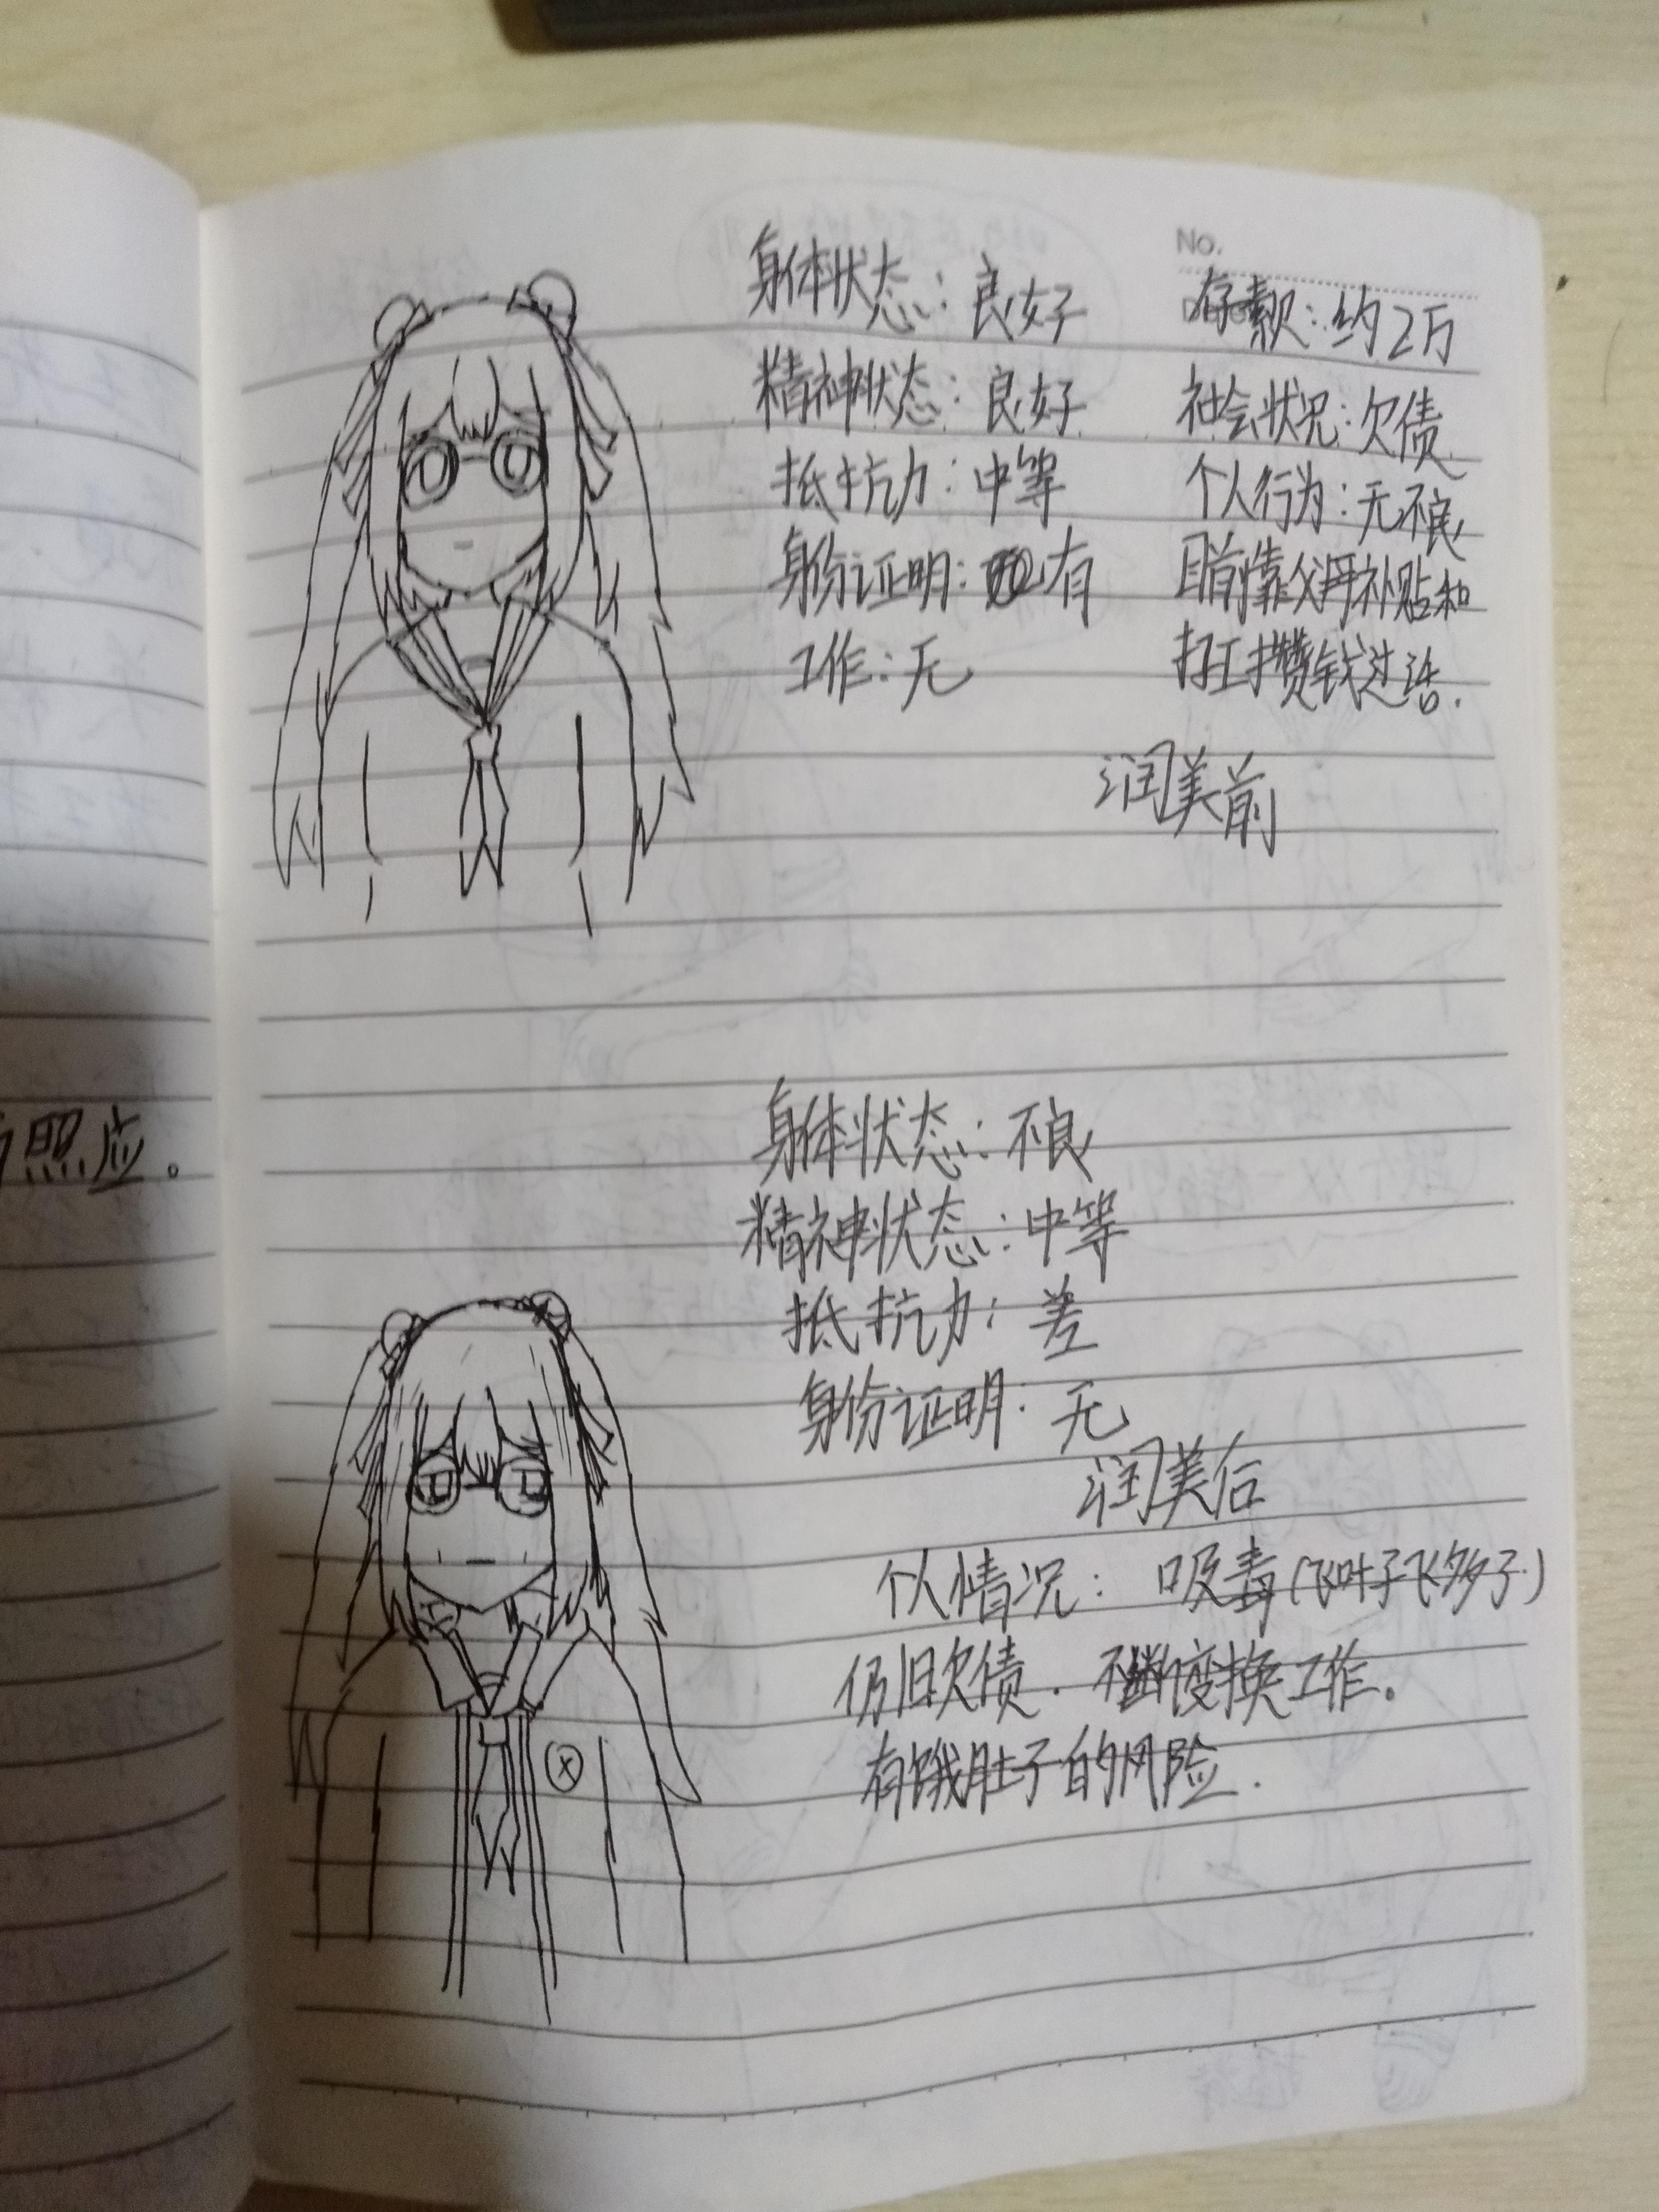 No.
身体状态：良好
精神状态：良好
抵抗力：中等
身份证明：有
工作：无
存款：约2万
社会状况：欠债
个人行为：无不良
目前靠父母补贴和
打工攒钱过活.
润美前
照应。
身体状态：不良
精神状态：中等
抵抗力：差
身份证明：无
润美后
个人情况： 吸毒（飞叶子飞多了）
仍旧欠债. 不断变换工作。
有饿肚子的风险.